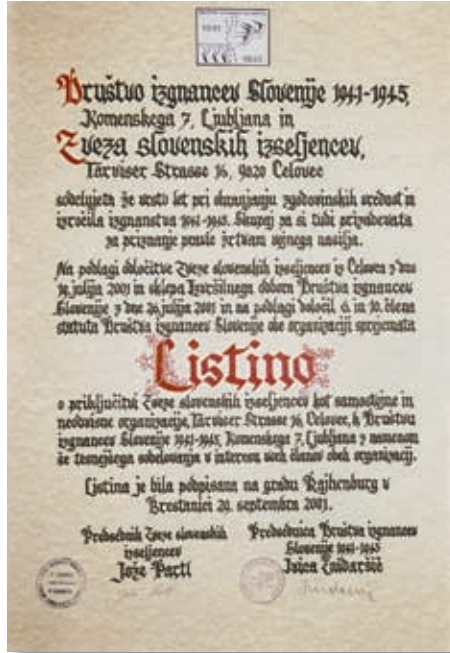 1941
1945
Društvo izgnancev Slovenije 1941-1945,
Komenskega 7, Ljubljana in
Zveza slovenskih izseljencev,
Tarviser Strasse 16, 9020 Celovec
sodelujeta že vrsto let pri ohranjanju zgodovinskih vrednot in
izročila izgnanstva 1941-1945. Skupaj pa si tudi prizadevata
za priznanje pravic žrtvam vojnega nasilja.
Na podlagi odločitve Zveze slovenskih izseljencev iz Celovca z dne
julija 2001 in sklepa Izvršilnega odbora Društva izgnancev
Slovenije z dne 26. julija 2001 in na podlagi določil 6. in 10. člena
statuta Društva izgnancev Slovenije obe organizaciji sprejemata
Listino
o priključitvi Zveze slovenskih izseljencev kot samostojne in
neodvisne organizacije, Tarviser Strasse 16, Celovec, k Društvu
izgnancev Slovenije 1941-1945, Komenskega 7, Ljubljana z namenom
še tesnejšega sodelovanja v interesu vseh članov obeh organizacij.
Listina je bila podpisana na gradu Rajhenburg v
Brestanici 20. septembra 2001.
Predsednik Zveze slovenskih
izseljencev
Jože Partl
Predsednica Društva izgnancev
Slovenije 1941-1945
Ivica Žnidaršič